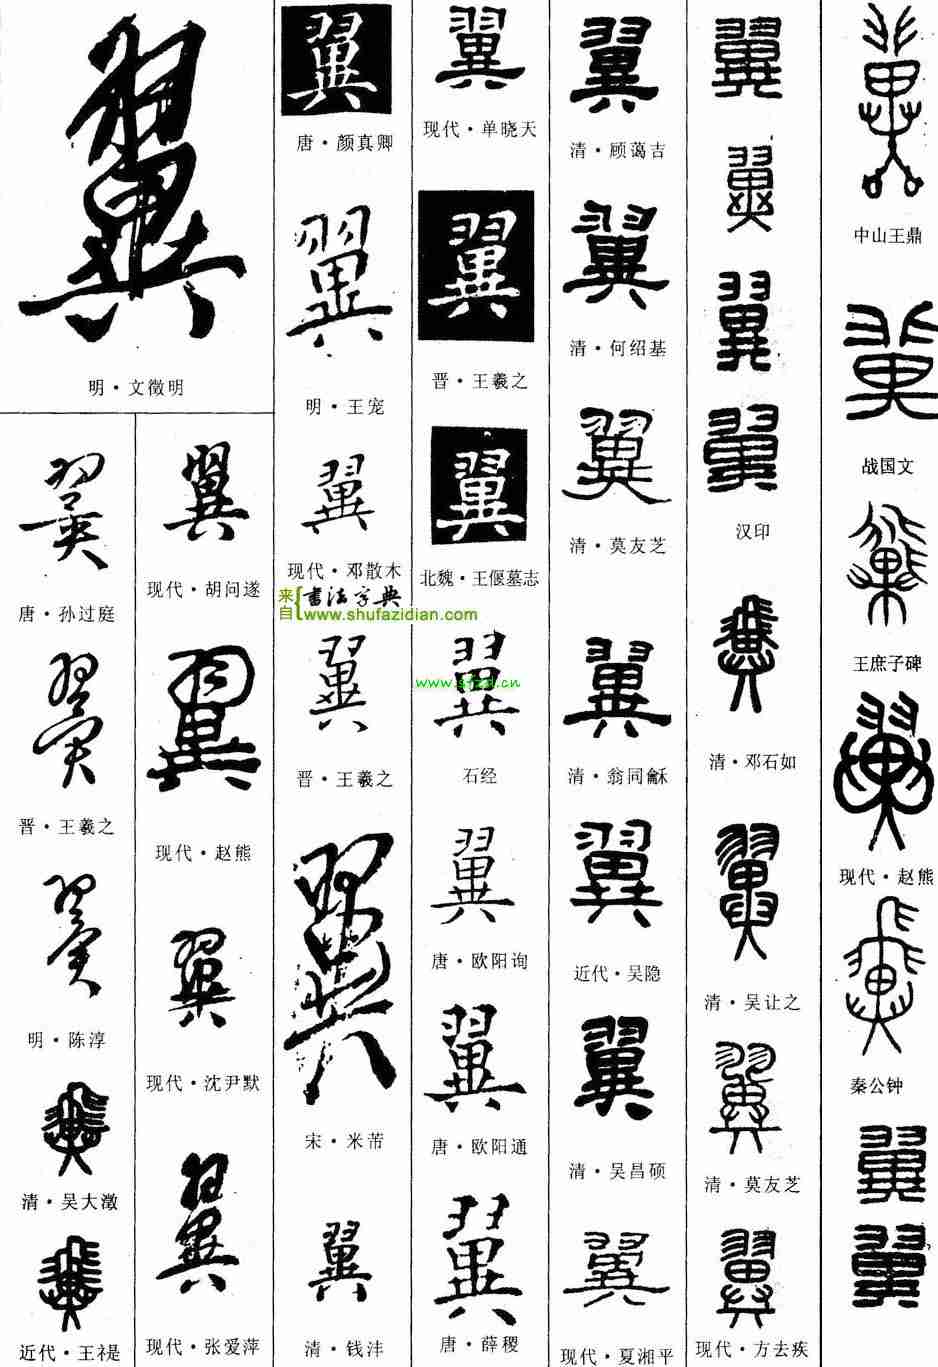 翼
明·文徵明
翼
唐·孙过庭
翼
晋·王羲之
翼
明·陈淳
翼
清·吴大澂
翼
近代·王禔
翼
现代·胡问遂
翼
现代·赵熊
翼
现代·沈尹默
翼
现代·张爱萍
翼
唐·颜真卿
翼
明·王宠
翼
现代·邓散木
来自{书法字典
www.shufazidian.com
翼
晋·王羲之
翼
宋·米芾
翼
清·钱沣
翼
现代·单晓天
翼
晋·王羲之
翼
北魏·王偃墓志
翼
www.sfzd.cn
石经
翼
唐·欧阳询
翼
唐·欧阳通
翼
唐·薛稷
翼
清·顾蔼吉
翼
清·何绍基
翼
清·莫友芝
翼
清·翁同龢
翼
近代·吴隐
翼
清·吴昌硕
翼
现代·夏湘平
翼
翼
翼
翼
汉印
翼
清·邓石如
翼
清·吴让之
翼
清·莫友芝
翼
现代·方去疾
翼
中山王鼎
翼
战国文
翼
王庶子碑
翼
现代·赵熊
翼
秦公钟
翼
翼